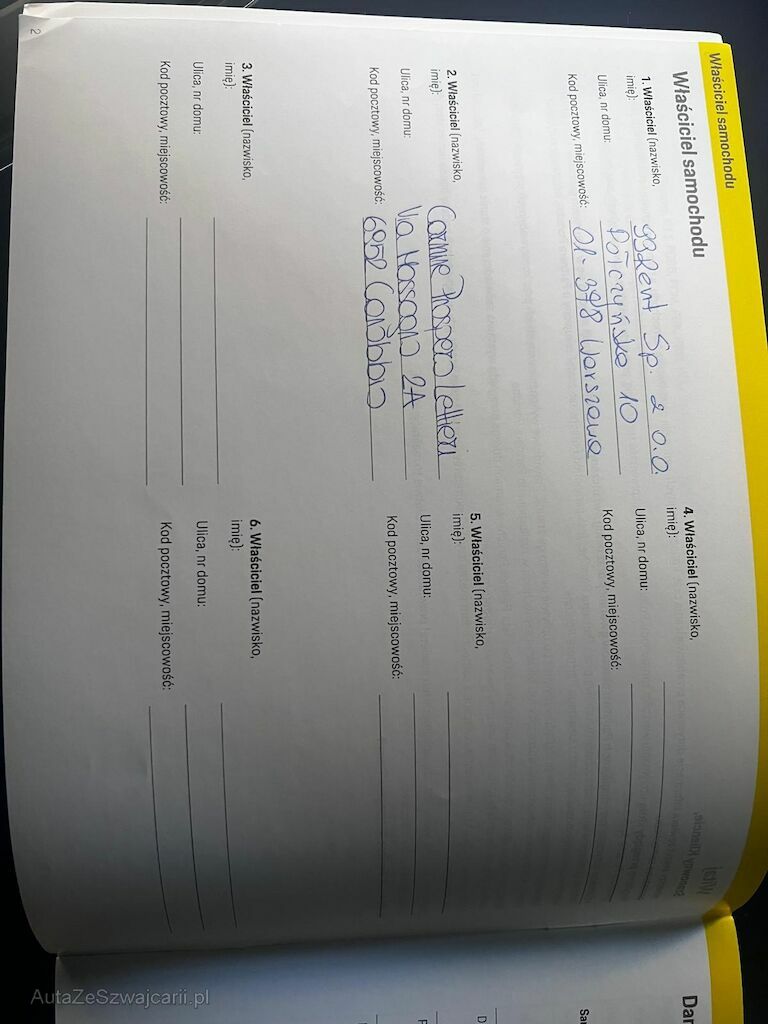 Właściciel samochodu
Właściciel samochodu
1. Właściciel (nazwisko,
imię):
99Rent Sp. z o.o.
Ulica, nr domu:
Połczyńska 10
Kod pocztowy, miejscowość:
01-378 Warszawa
2. Właściciel (nazwisko,
imię):
Carmine Prospero Lettieri
Ulica, nr domu:
Via 2A
Kod pocztowy, miejscowość:
6952 Canobbio
3. Właściciel (nazwisko,
imię):
Ulica, nr domu:
Kod pocztowy, miejscowość:
4. Właściciel (nazwisko,
imię):
Ulica, nr domu:
Kod pocztowy, miejscowość:
5. Właściciel (nazwisko,
imię):
Ulica, nr domu:
Kod pocztowy, miejscowość:
6. Właściciel (nazwisko,
imię):
Ulica, nr domu:
Kod pocztowy, miejscowość:
2
Dar
Sa
AutaZeSzwajcarii.pl